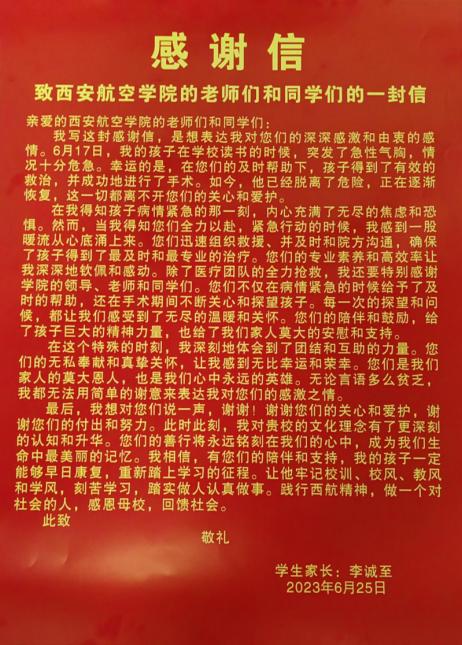 感谢信
致西安航空学院的老师们和同学们的一封信
亲爱的西安航空学院的老师们和同学们：
我写这封感谢信，是想表达我对您们的深深感激和由衷的感
情。6月17日，我的孩子在学校读书的时候，突发了急性气胸，情
况十分危急。幸运的是，在您们的及时帮助下，孩子得到了有效的
救治，并成功地进行了手术。如今，他已经脱离了危险，正在逐渐
恢复，这一切都离不开您们的关心和爱护。
在我得知孩子病情紧急的那一刻，内心充满了无尽的焦虑和恐
惧。然而，当我得知您们全力以赴，紧急行动的时候，我感到一股
暖流从心底涌上来。您们迅速组织救援、并及时和院方沟通，确保
了孩子得到了最及时和最专业的治疗。您们的专业素养和高效率让
我深深地钦佩和感动。除了医疗团队的全力抢救，我还要特别感谢
学院的领导、老师和同学们。您们不仅在病情紧急的时候给予了及
时的帮助，还在手术期间不断关心和探望孩子。每一次的探望和问
候，都让我们感受到了无尽的温暖和关怀。您们的陪伴和鼓励，给
了孩子巨大的精神力量，也给了我们家人莫大的安慰和支持。
在这个特殊的时刻，我深刻地体会到了团结和互助的力量。您
们的无私奉献和真挚关怀，让我感到无比幸运和荣幸。您们是我们
家人的莫大恩人，也是我们心中永远的英雄。无论言语多么贫乏，
我都无法用简单的谢意来表达我对您们的感激之情。
最后，我想对您们说一声，谢谢！谢谢您们的关心和爱护，谢
谢您们的付出和努力。此时此刻，我对贵校的文化理念有了更深刻
的认知和升华。您们的善行将永远铭刻在我们的心中，成为我们生
命中最美丽的记忆。我相信，有您们的陪伴和支持，我的孩子一定
能够早日康复，重新踏上学习的征程。让他牢记校训、校风、教风
和学风，刻苦学习，踏实做人认真做事。践行西航精神，做一个对
社会的人，感恩母校，回馈社会。
此致
敬礼
学生家长：李诚至
2023年6月25日